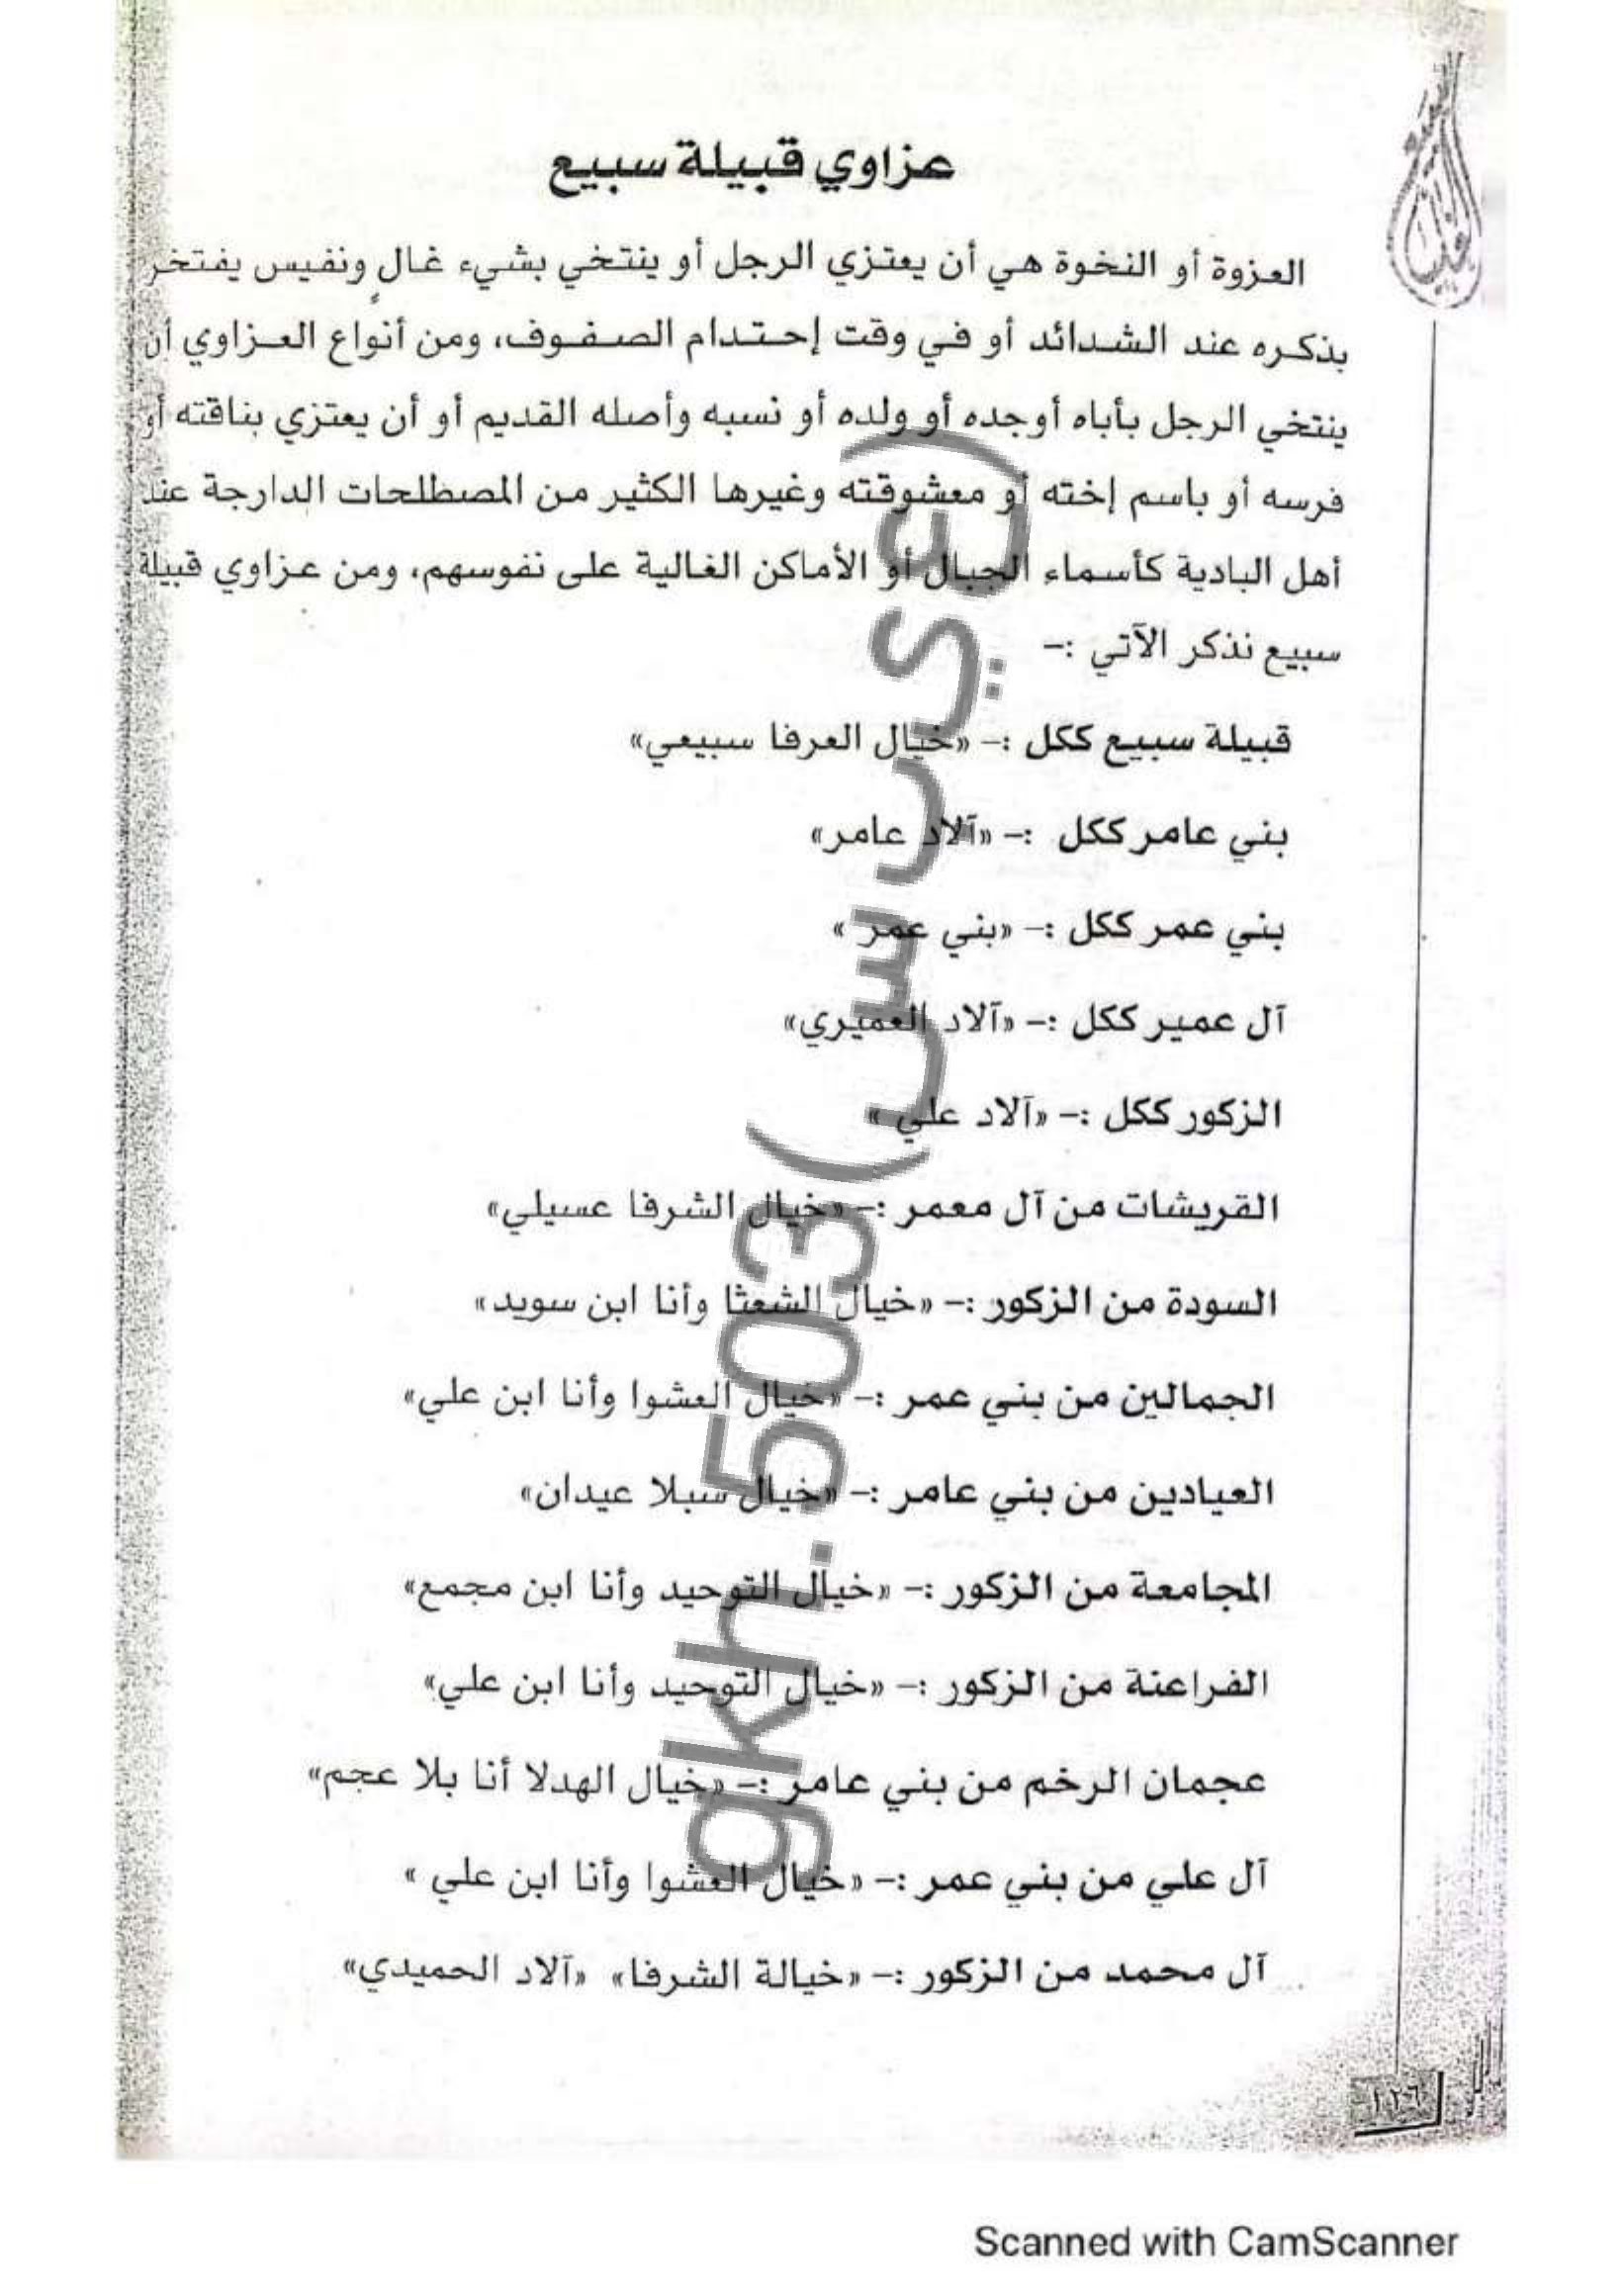 عزاوي قبيلة سبيع
العزوة أو النخوة هي أن يعتزي الرجل أو ينتخي بشيء غالٍ ونفيس يفتخر
بذكره عند الشدائد أو في وقت إحتدام الصفوف، ومن أنواع العزاوي أن
ينتخي الرجل بأباه أوجده أو ولده أو نسبه وأصله القديم أو أن يعتزي بناقته أو
فرسه أو باسم إخته أو معشوقته وغيرها الكثير من المصطلحات الدارجة عند
أهل البادية كأسماء الجبال أو الأماكن الغالية على نفوسهم، ومن عزاوي قبيلة
سبيع نذكر الآتي :-
قبيلة سبيع ككل :- «خيال العرفا سبيعي»
بني عامر ككل :- «آلاد عامر»
بني عمر ككل :- «بني عمر »
آل عمير ككل :- «آلاد العميري»
الزكور ككل :- «آلاد علي »
القريشات من آل معمر :- «خيال الشرفا عسيلي»
السودة من الزكور :- «خيال الشعثا وأنا ابن سويد»
الجمالين من بني عمر :- «خيال العشوا وأنا ابن علي»
العيادين من بني عامر :- «خيال سبلا عيدان»
المجامعة من الزكور :- «خيال التوحيد وأنا ابن مجمع»
الفراعنة من الزكور :- «خيال التوحيد وأنا ابن علي»
عجمان الرخم من بني عامر :- «خيال الهدلا أنا بلا عجم»
آل علي من بني عمر :- «خيال العشوا وأنا ابن علي »
آل محمد من الزكور :- «خيالة الشرفا» «آلاد الحميدي»
١٢٦
gkh.503
Scanned with CamScanner